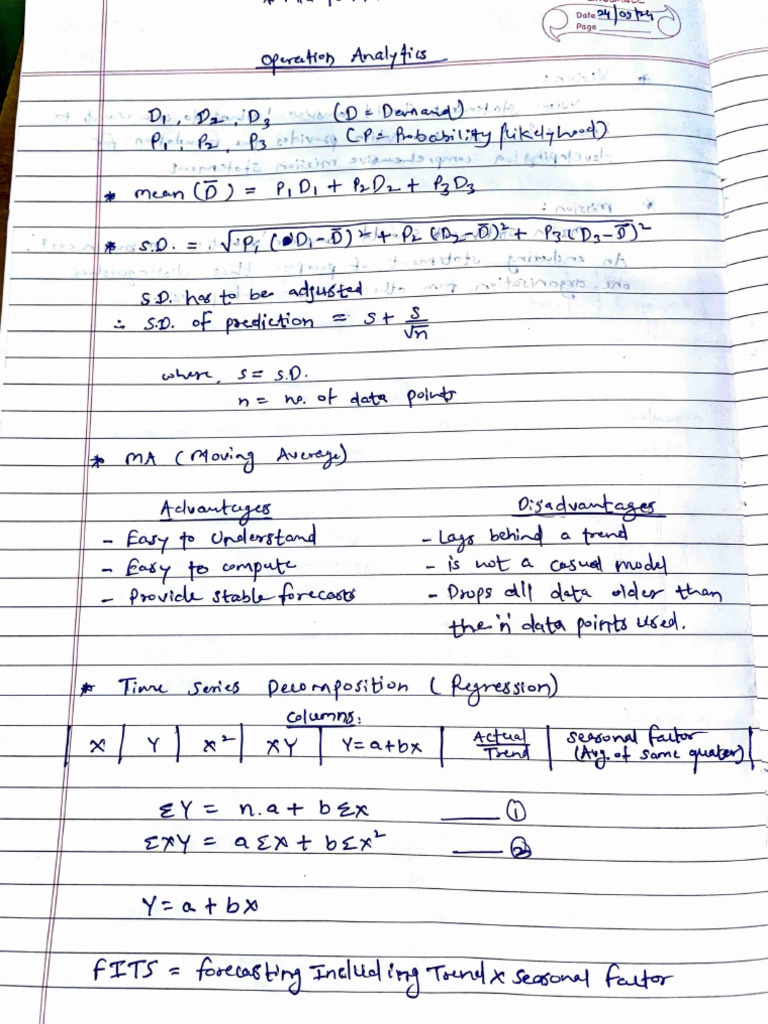 Date 24/03/24
Page
Operation Analytics
D1, D2, D3 (D = Demand)
P1, P2, P3 (P = Probability/likelyhood)
* mean (D̄) = P1D1 + P2D2 + P3D3
* S.D. = √P1(D1-D̄)² + P2(D2-D̄)² + P3(D3-D̄)²
S.D. has to be adjusted
∴ S.D. of prediction = S + S/√n
where, S = S.D.
n = no. of data points
* MA (Moving Average)
Advantages
- Easy to Understand
- Easy to compute
- Provide stable forecasts
Disadvantages
- Lags behind a trend
- is not a casual model
- Drops all data older than
the 'n' data points used.
* Time series Decomposition (Regression)
columns:
| X | Y | X² | XY | Y=a+bx | Actual/Trend | seasonal factor (Avg. of same quater) |
ΣY = n.a + bΣx —— ①
ΣXY = aΣx + bΣx² —— ②
Y = a + bx
FITS = forecasting Including Trend x seasonal factor